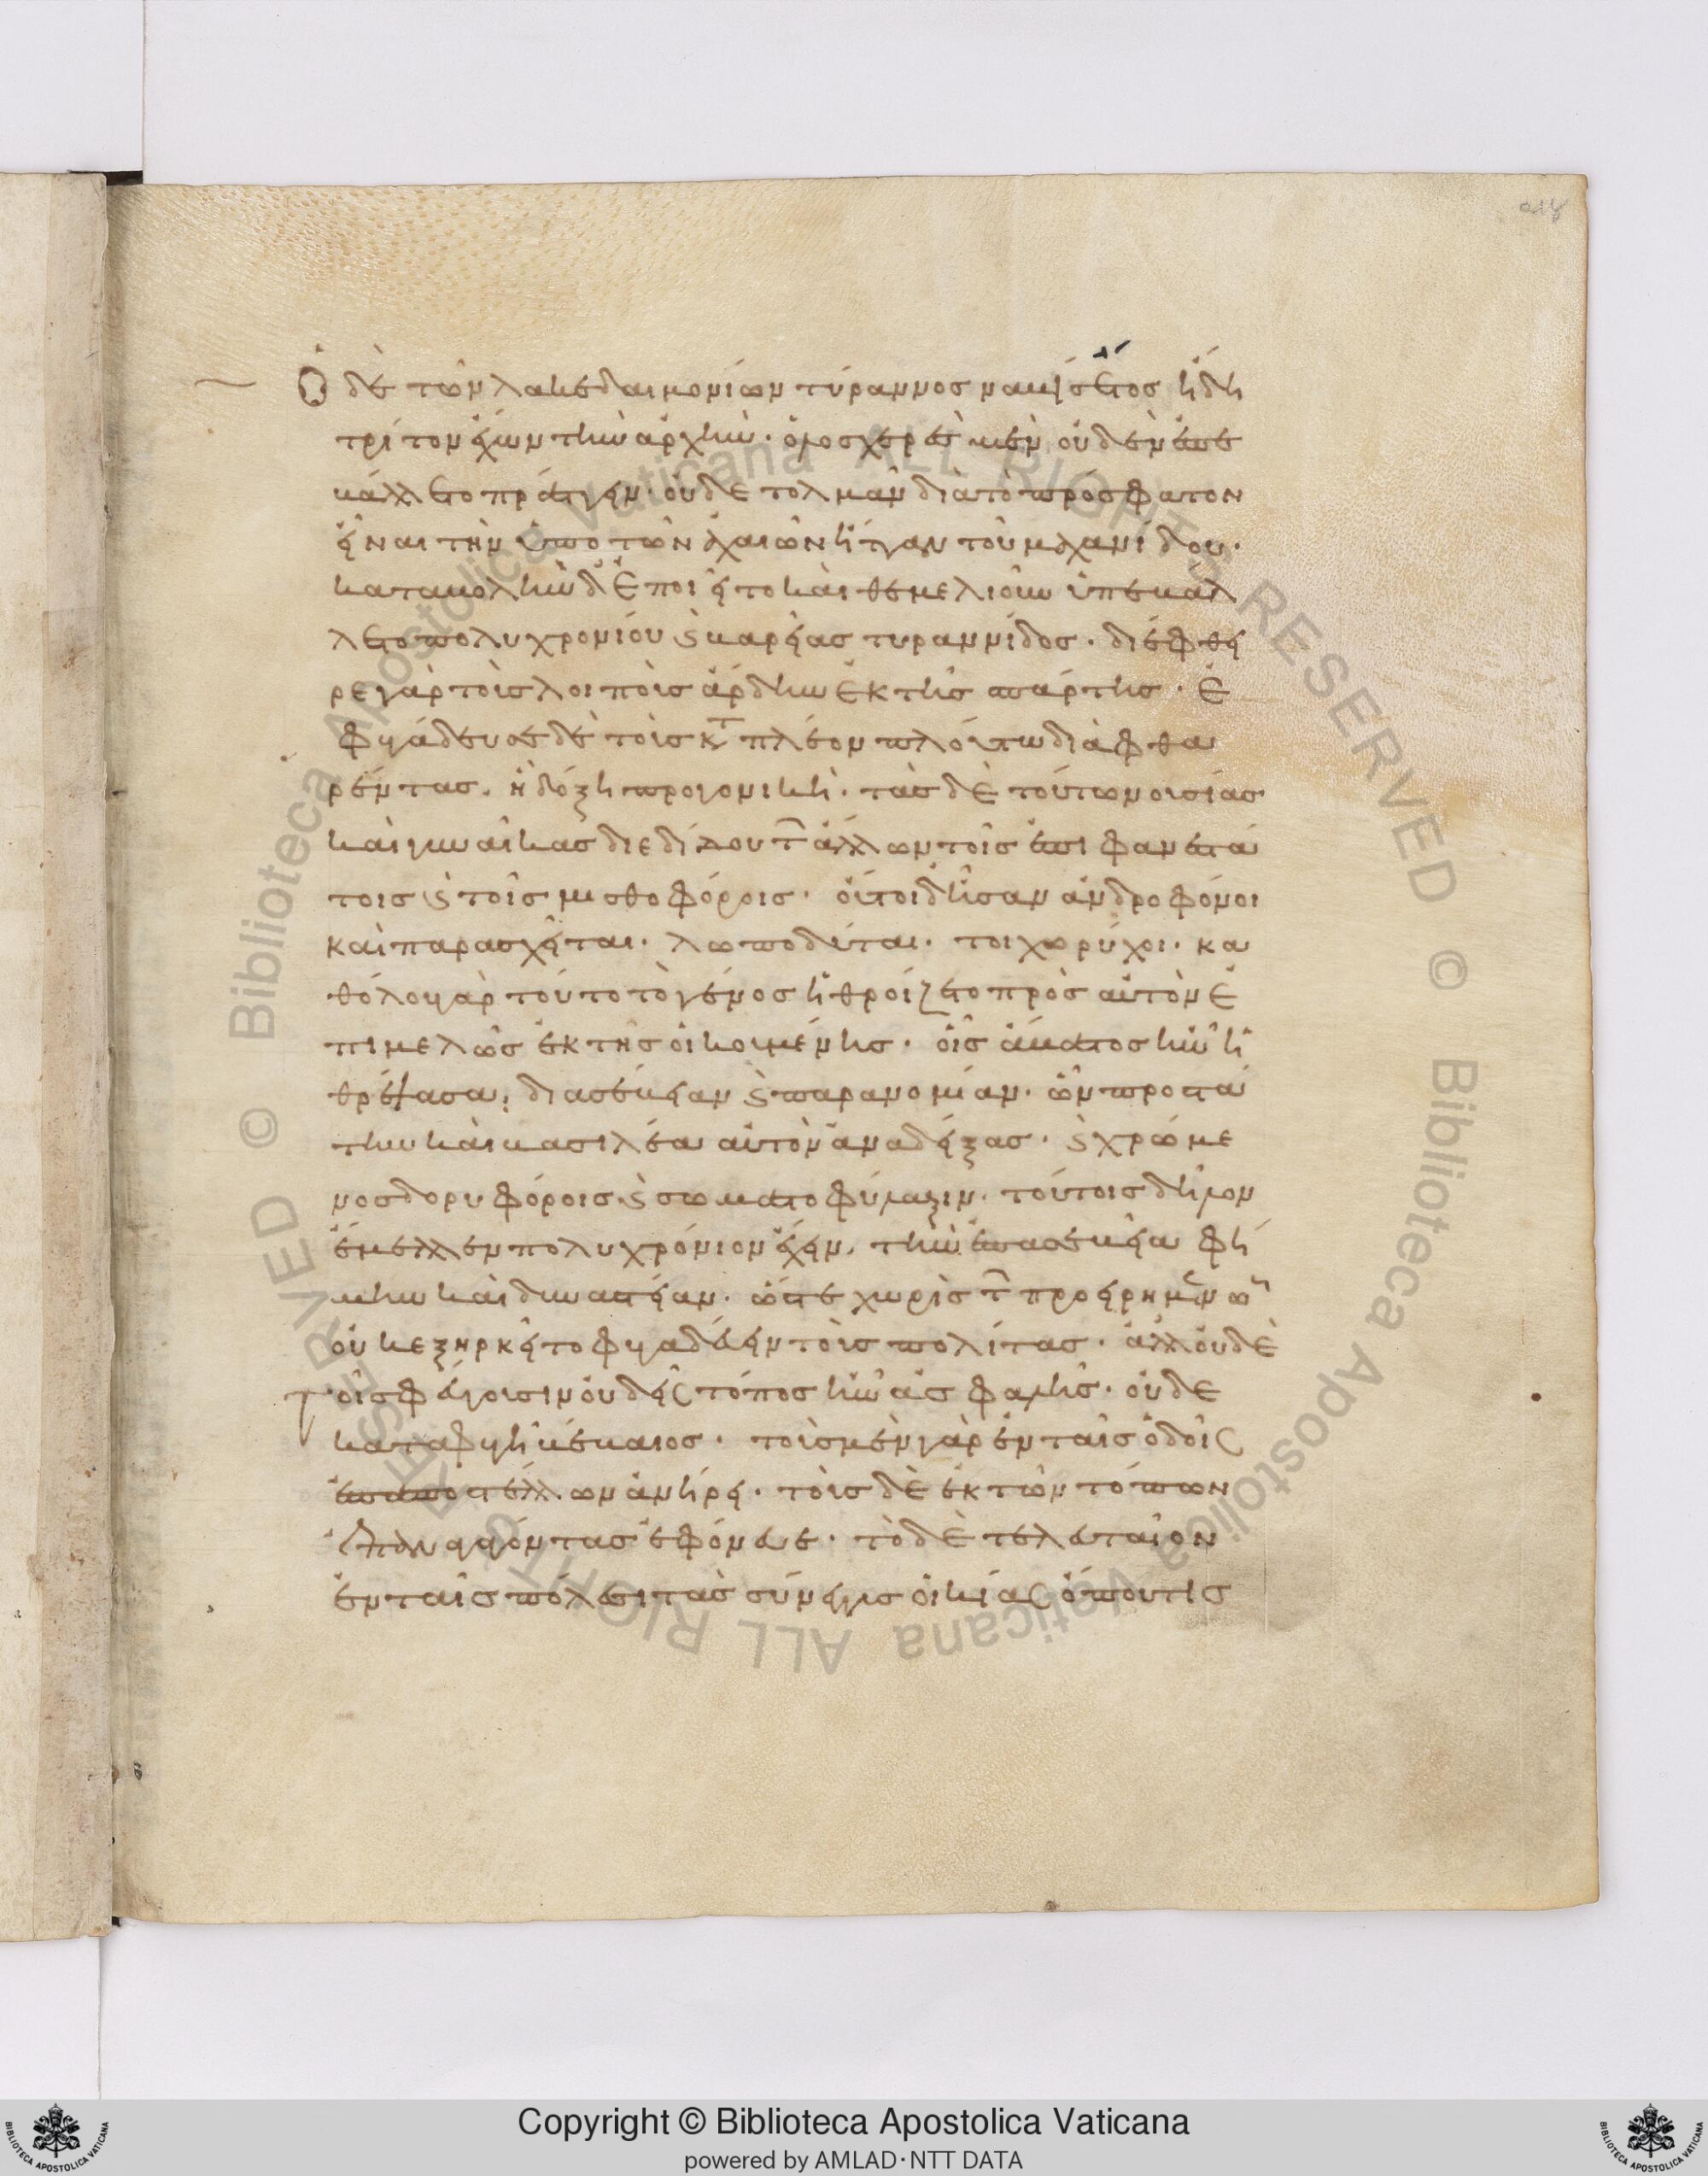 Ὁ δὲ τῶν λακεδαιμονίων τύραννος ναβίς ἔτος ἤδη
τρίτον ἔχων τὴν ἀρχὴν· ὁλοσχερὲς μὲν οὐδὲν ἐπε
βάλλετο πράττειν· οὐδε τολμᾶν διὰ τὸ πρόσφατον
εἶναι τὴν ὑπὸ τῶν ἀχαιῶν ἧτταν τοῦ μαχανίδου·
καταβολὴν δ' ἐποιεῖτο καὶ θεμελιον ὑπεβάλ
λετο πολυχρονίου ϗ βαρείας τυραννίδος· διέφθει
ρε γὰρ τοὺς λοιποὺς ἄρδην ἐκ τῆς σπάρτης· ἐ
φυγάδευσε δὲ τοὺς κτ πλέον πλούτω διὰφθα
ρέντας. ἢ δόξη προγονικῆ· τὰς δὲ τούτων οὐσίας
καὶ γυναῖκας διεδίδου τ ἄλλων τοῖς ἐπιφανεστά
τοις ϗ τοῖς μισθοφόροις· οὗτοι δ' ἦσαν ἀνδροφόνοι
καὶ παρασχῆται· λωποδύται· τοιχωρύχοι· κα
θόλου γὰρ τοῦτο τὸ γένος ἠθροίζετο πρὸς αὐτὸν ἐ
πιμελῶς ἐκ τῆς οἰκουμένης· οἷς ἄβατος ἦν ἡ
θρέψασα· διασέβειαν ϗ παρανομίαν· ὧν προστά
την καὶ βασιλέα αὐτὸν ἀναδείξας· ϗ χρώμε
νος δορυφόροις· ϗ σωματοφύλαξιν· τούτοις δῆλον
ἔμελλεν πολυχρόνιον ἔχειν· τὴν ἐπασεβεία φή
μην καὶ δυναστείαν· ὥστε χωρὶς τ προειρημένων
οὐκ ἐξηρκεῖτο φυγαδεύειν τοὺς πολίτας· ἀλλ' οὐδὲ
τοῖς φεύγουσιν οὐδεὶς τόπος ἦν ἀσφαλῆς· οὐδε
καταφυγὴ βέβαιος· τοὺς μὲν γὰρ ἐν ταῖς ὁδοῖς
ἐπαποστέλλων ἀνήρει· τοὺς δὲ ἐκ τῶν τόπων
ἐφόνευε· τὸ δὲ τελευταῖον
ἐν ταῖς πόλεσι τὰς σύνεγγυς οἰκίας ὅπου τις
Copyright © Biblioteca Apostolica Vaticana
powered by AMLAD·NTT DATA